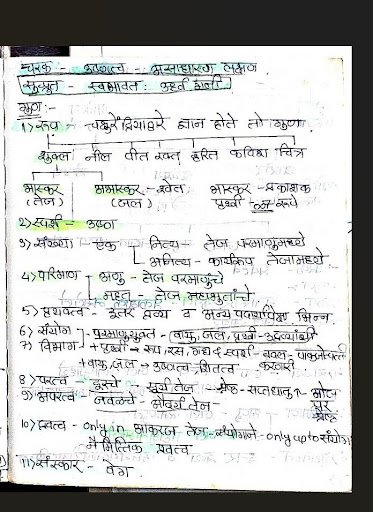 चरक - उष्णत्व - असाधारण लक्षण
सुश्रुत - स्वभावतः उर्ध्व गती
गुण :-
1) रूप - चक्षुरेंद्रियाद्वारे ज्ञान होते तो गुण
शुक्ल नील पीत रक्त हरित कपिश चित्र
भास्कर अभास्कर - श्वेत भास्कर - प्रकाशक
(तेज) (जल) पृथ्वी
2) स्पर्श - उष्ण
3) संख्या - एक नित्य - तेज परमाणुमध्ये
अनित्य - कार्यरूप तेजामध्ये
4) परिमाण - अणु - तेज परमाणुचे
महत् - तेज महाभूतांचे
5) पृथक्त्व - इतर द्रव्य व अन्य पदार्थापेक्षा भिन्न
6) संयोग - परमाणुयुक्त - (वायु, जल, पृथ्वी -
7) विभाग - + पृथ्वी → रूप, रस, गंध व स्पर्श - बदल -
+ वायु, जल → उष्णत्व, शितत्व
8) परत्व - दूरचे - सूर्य तेज - श्रेष्ठ - सप्तधातु
9) अपरत्व - जवळचे - औदर्य तेज
10) द्रवत्व - only in आकरज तेज - संयोगाने - only upto संयोग
नैमित्तिक द्रवत्व
11) संस्कार - वेग